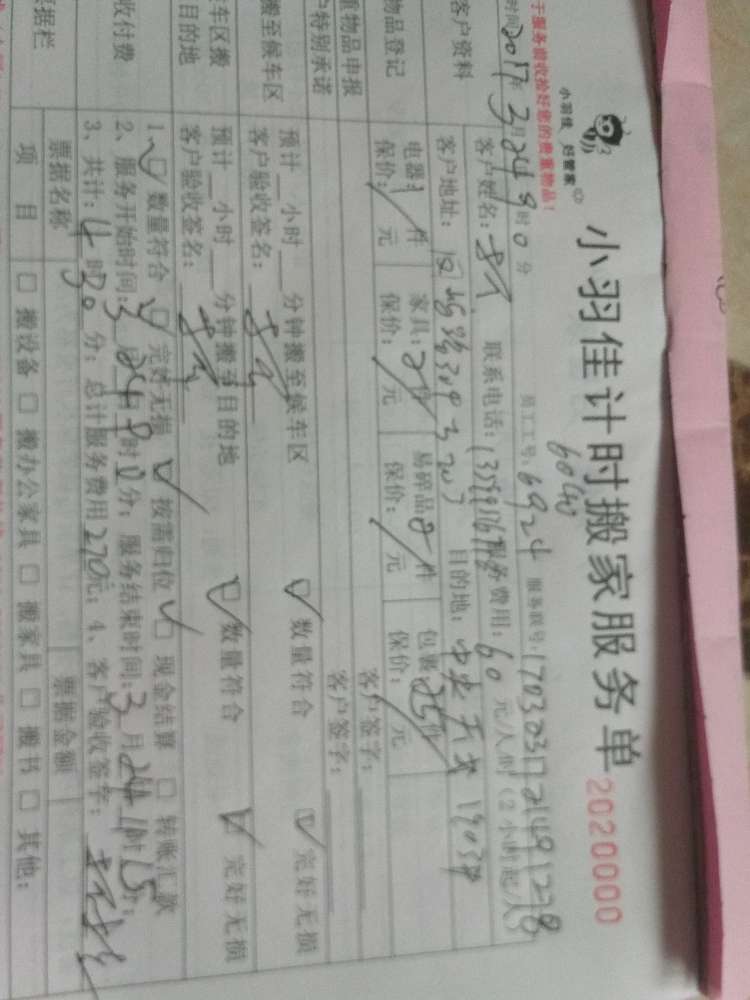 小羽佳 好管家
小羽佳计时搬家服务单 2020000
于服务前收拾好您的贵重物品!
时间2017年3月24日9时0分 员工工号:6924 服务联号:
客户资料
客户姓名: 联系电话: 服务费用:60元/人时(2小时起/人)
客户地址: 目的地:
物品登记
电器:1件 家具:2件 易碎品2件 包裹:25件
保价:/元 保价:/元 保价:/元 保价: 元
重物品申报 客户签字:
户特别承诺 客户签字:
搬至候车区
预计__小时__分钟搬至候车区 数量符合 完好无损
客户验收签名:
车区搬目的地
预计__小时__分钟搬至目的地 数量符合 完好无损
客户验收签名:
收付费
1、数量符合 完好无损 按需归位 现金结算 转账汇款
2、服务开始时间:3月24日9时0分;服务结束时间:3月24日 时15分;
3、共计:4时30分;总计服务费用270元;4、客户验收签字:
票据栏
票据名称 票据金额
项 目 搬设备 搬办公家具 搬家具 搬书 其他: